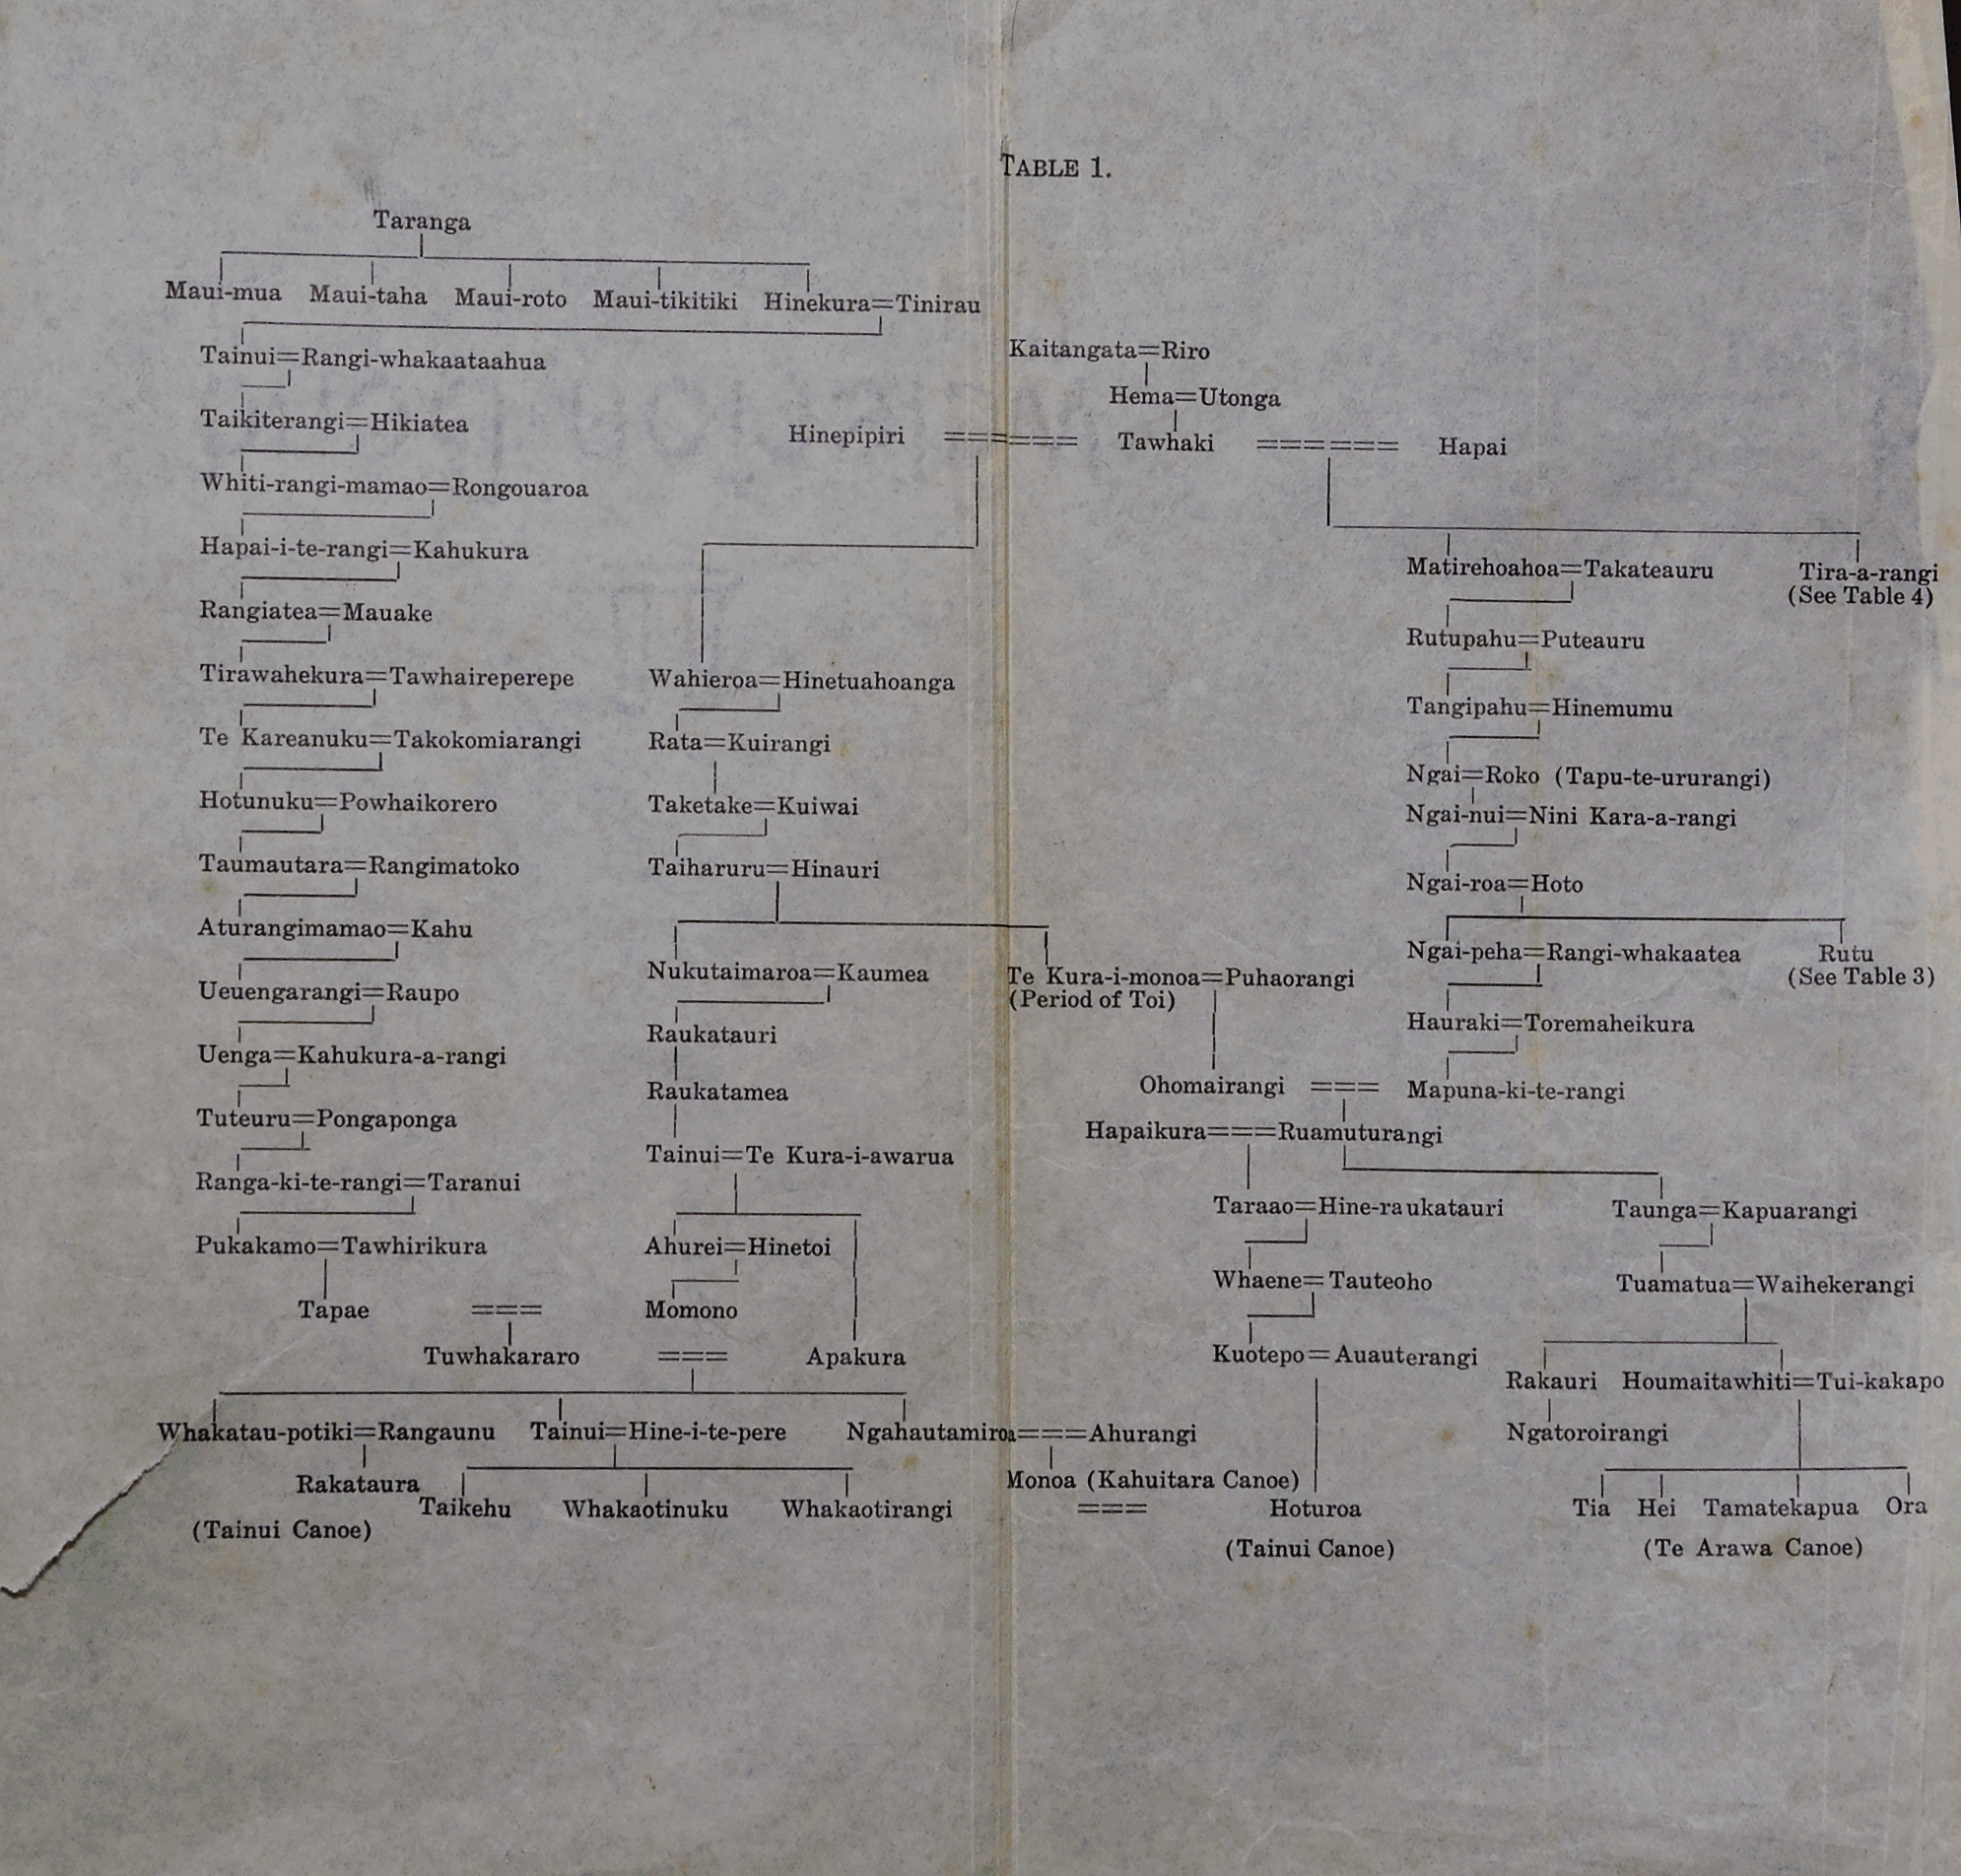 TABLE 1.
Taranga
Maui-mua Maui-taha Maui-roto Maui-tikitiki Hinekura=Tinirau
Tainui=Rangi-whakaataahua
Taikiterangi=Hikiatea
Whiti-rangi-mamao=Rongouaroa
Hapai-i-te-rangi=Kahukura
Rangiatea=Mauake
Tirawahekura=Tawhaireperepe
Te Kareanuku=Takokomiarangi
Hotunuku=Powhaikorero
Taumautara=Rangimatoko
Aturangimamao=Kahu
Ueuengarangi=Raupo
Uenga=Kahukura-a-rangi
Tuteuru=Pongaponga
Ranga-ki-te-rangi=Taranui
Pukakamo=Tawhirikura
Kaitangata=Riro
Hema=Utonga
Hinepipiri ====== Tawhaki ====== Hapai
Wahieroa=Hinetuahoanga
Rata=Kuirangi
Taketake=Kuiwai
Taiharuru=Hinauri
Nukutaimaroa=Kaumea
Te Kura-i-monoa=Puhaorangi
(Period of Toi)
Raukatauri
Raukatamea
Tainui=Te Kura-i-awarua
Ahurei=Hinetoi
Tapae === Momono
Tuwhakararo === Apakura
Whakatau-potiki=Rangaunu Tainui=Hine-i-te-pere Ngahautamiroa===Ahurangi
Rakataura
Taikehu Whakaotinuku Whakaotirangi
(Tainui Canoe)
Monoa (Kahuitara Canoe)
=== Hoturoa
(Tainui Canoe)
Matirehoahoa=Takateauru Tira-a-rangi
(See Table 4)
Rutupahu=Puteauru
Tangipahu=Hinemumu
Ngai=Roko (Tapu-te-ururangi)
Ngai-nui=Nini Kara-a-rangi
Ngai-roa=Hoto
Ngai-peha=Rangi-whakaatea Rutu
(See Table 3)
Hauraki=Toremaheikura
Ohomairangi === Mapuna-ki-te-rangi
Hapaikura===Ruamuturangi
Taraao=Hine-raukatauri Taunga=Kapuarangi
Whaene=Tauteoho Tuamatua=Waihekerangi
Kuotepo=Auauterangi
Rakauri Houmaitawhiti=Tui-kakapo
Ngatoroirangi
Tia Hei Tamatekapua Ora
(Te Arawa Canoe)